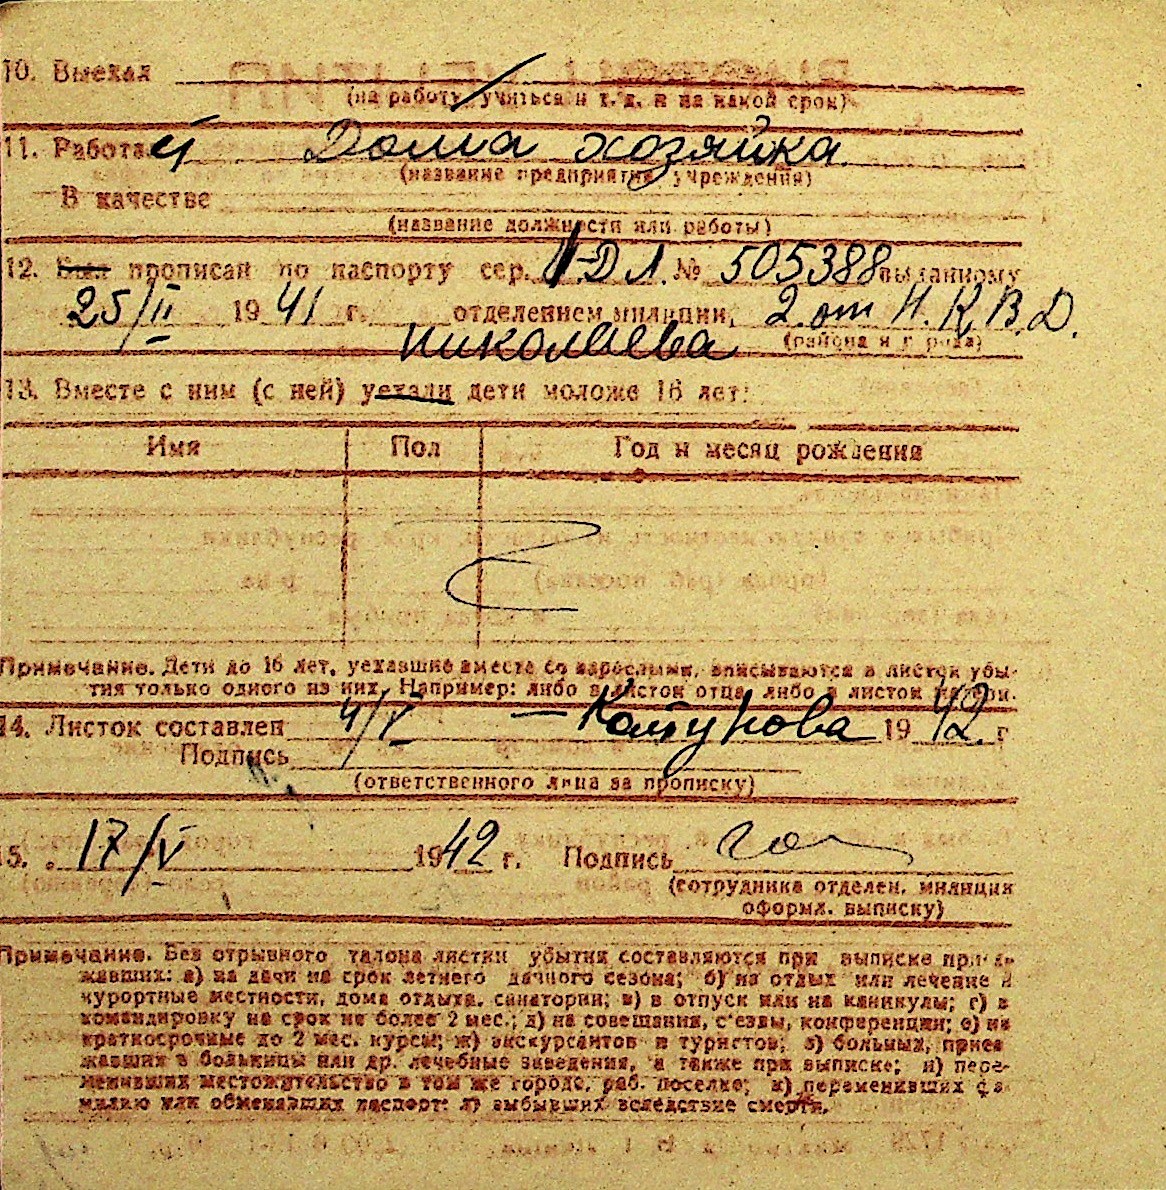 10. Выехал
(на работу, учиться и т. д. и на какой срок)
11. Работает Дома хозяйка
(название предприятия, учреждения)
В качестве
(название должности или работы)
12. Был прописан по паспорту сер. II-ДЛ. № 505388 выданному
25/II 1941 г. отделением милиции, 2 от Н.К.В.Д.
Николаева (района и города)
13. Вместе с ним (с ней) уехали дети моложе 16 лет:
Имя Пол Год и месяц рождения
Z
Примечание. Дети до 16 лет, уехавшие вместе со взрослыми, вписываются в листок убы-
тия только одного из них. Например: либо в листок отца либо в листок матери.
14. Листок составлен 4/V 1942 г
Подпись
(ответственного лица за прописку)
15. 17/V 1942 г. Подпись
(сотрудника отделен. милиции
оформл. выписку)
Примечание. Без отрывного талона листки убытия составляются при выписке приез-
жавших: а) на дачи на срок летнего дачного сезона; б) на отдых или лечение в
курортные местности, дома отдыха, санатории; в) в отпуск или на каникулы; г) в
командировку на срок не более 2 мес.; д) на совещания, с'езды, конференции; е) на
краткосрочные до 2 мес. курсы; ж) экскурсантов и туристов; з) больных, приез
жавших в больницы или др. лечебные заведения, а также при выписке; и) пере-
менивших местожительство в том же городе, раб. поселке; к) переменивших фа-
милию или обменявших паспорт; л) выбывших вследствие смерти.